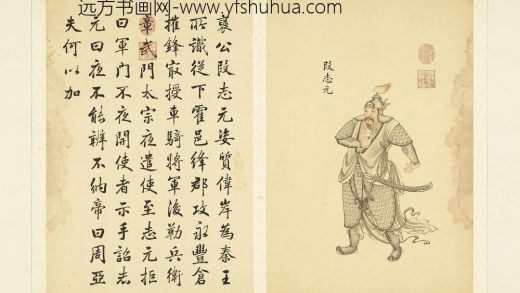 远方书画网- www.yfshuhua.com
段志元
襄公段志元姿質偉岸為秦王
所識從下霍邑絳郡攻永豐倉
推鋒㝡授車騎將軍後勒兵衛
章武門太宗夜遣使至志元拒
曰軍門不夜開使者示手詔志
元曰夜不能辨不納帝曰周亞
夫何以加